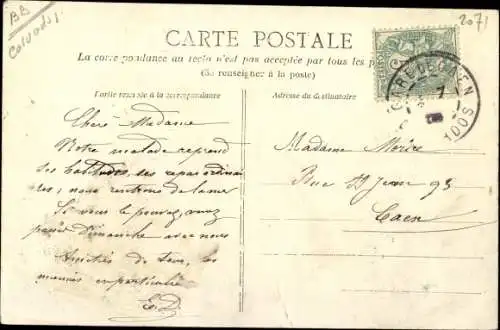 BB
Calvados
2071
CARTE POSTALE
La correspondance au recto n'est pas acceptée par tous les
(Se renseigner à la poste)
Partie réservée à la correspondance
Adresse du destinataire
GARE DE CAEN
Chère Madame
Notre malade reprend
ses habitudes, ses repas ordinai
res, nous rentrons de la mer
Si vous le pouvez, venez
passer Dimanche avec nous
Amitiés de tous, les
miennes en particulier
E.D.
Madame
Rue St Jean 93
Caen